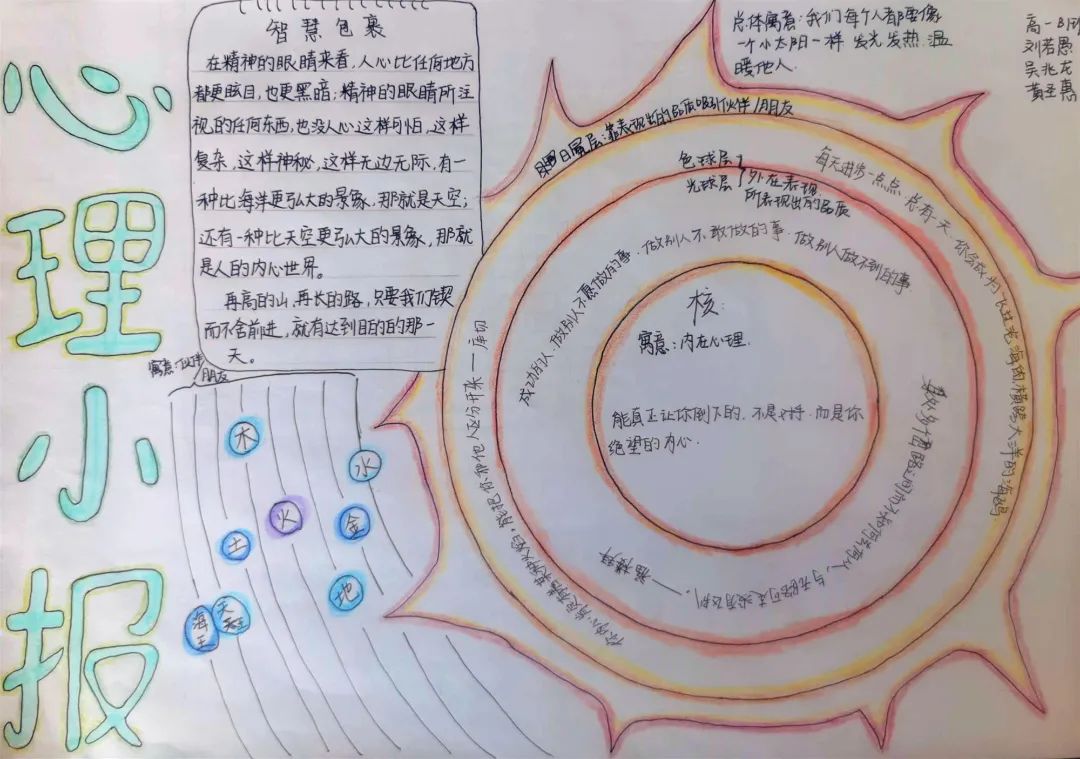 心理小报
智慧包裹
在精神的眼睛来看，人心比任何地方
都更眩目，也更黑暗；精神的眼睛所注
视的任何东西，也没人心这样可怕，这样
复杂，这样神秘，这样无边无际。有一
种比海洋更弘大的景象，那就是天空；
还有一种比天空更弘大的景象，那就
是人的内心世界。
再高的山，再长的路，只要我们锲
而不舍前进，就有达到目的的那一
天。
寓意：伙伴
朋友
木
水
火
金
土
地
海王
天王
总体寓意：我们每个人都要像
一个小太阳一样 发光发热，温
暖他人．
高一
刘若愚
吴兆龙
黄圣惠
日冕层：靠表现出的品质吸引伙伴/朋友
色球层
光球层
外在表现
所表现出的品质
每天进步一点点，总有一天，你会成为
横跨大洋的海鸥
成功的人，做别人不愿做的事，做别人不敢做的事，做别人做不到的事
能把你和他人区分开来
核：
寓意：内在心理．
能真正让你倒下的，不是对手，而是你
绝望的内心．